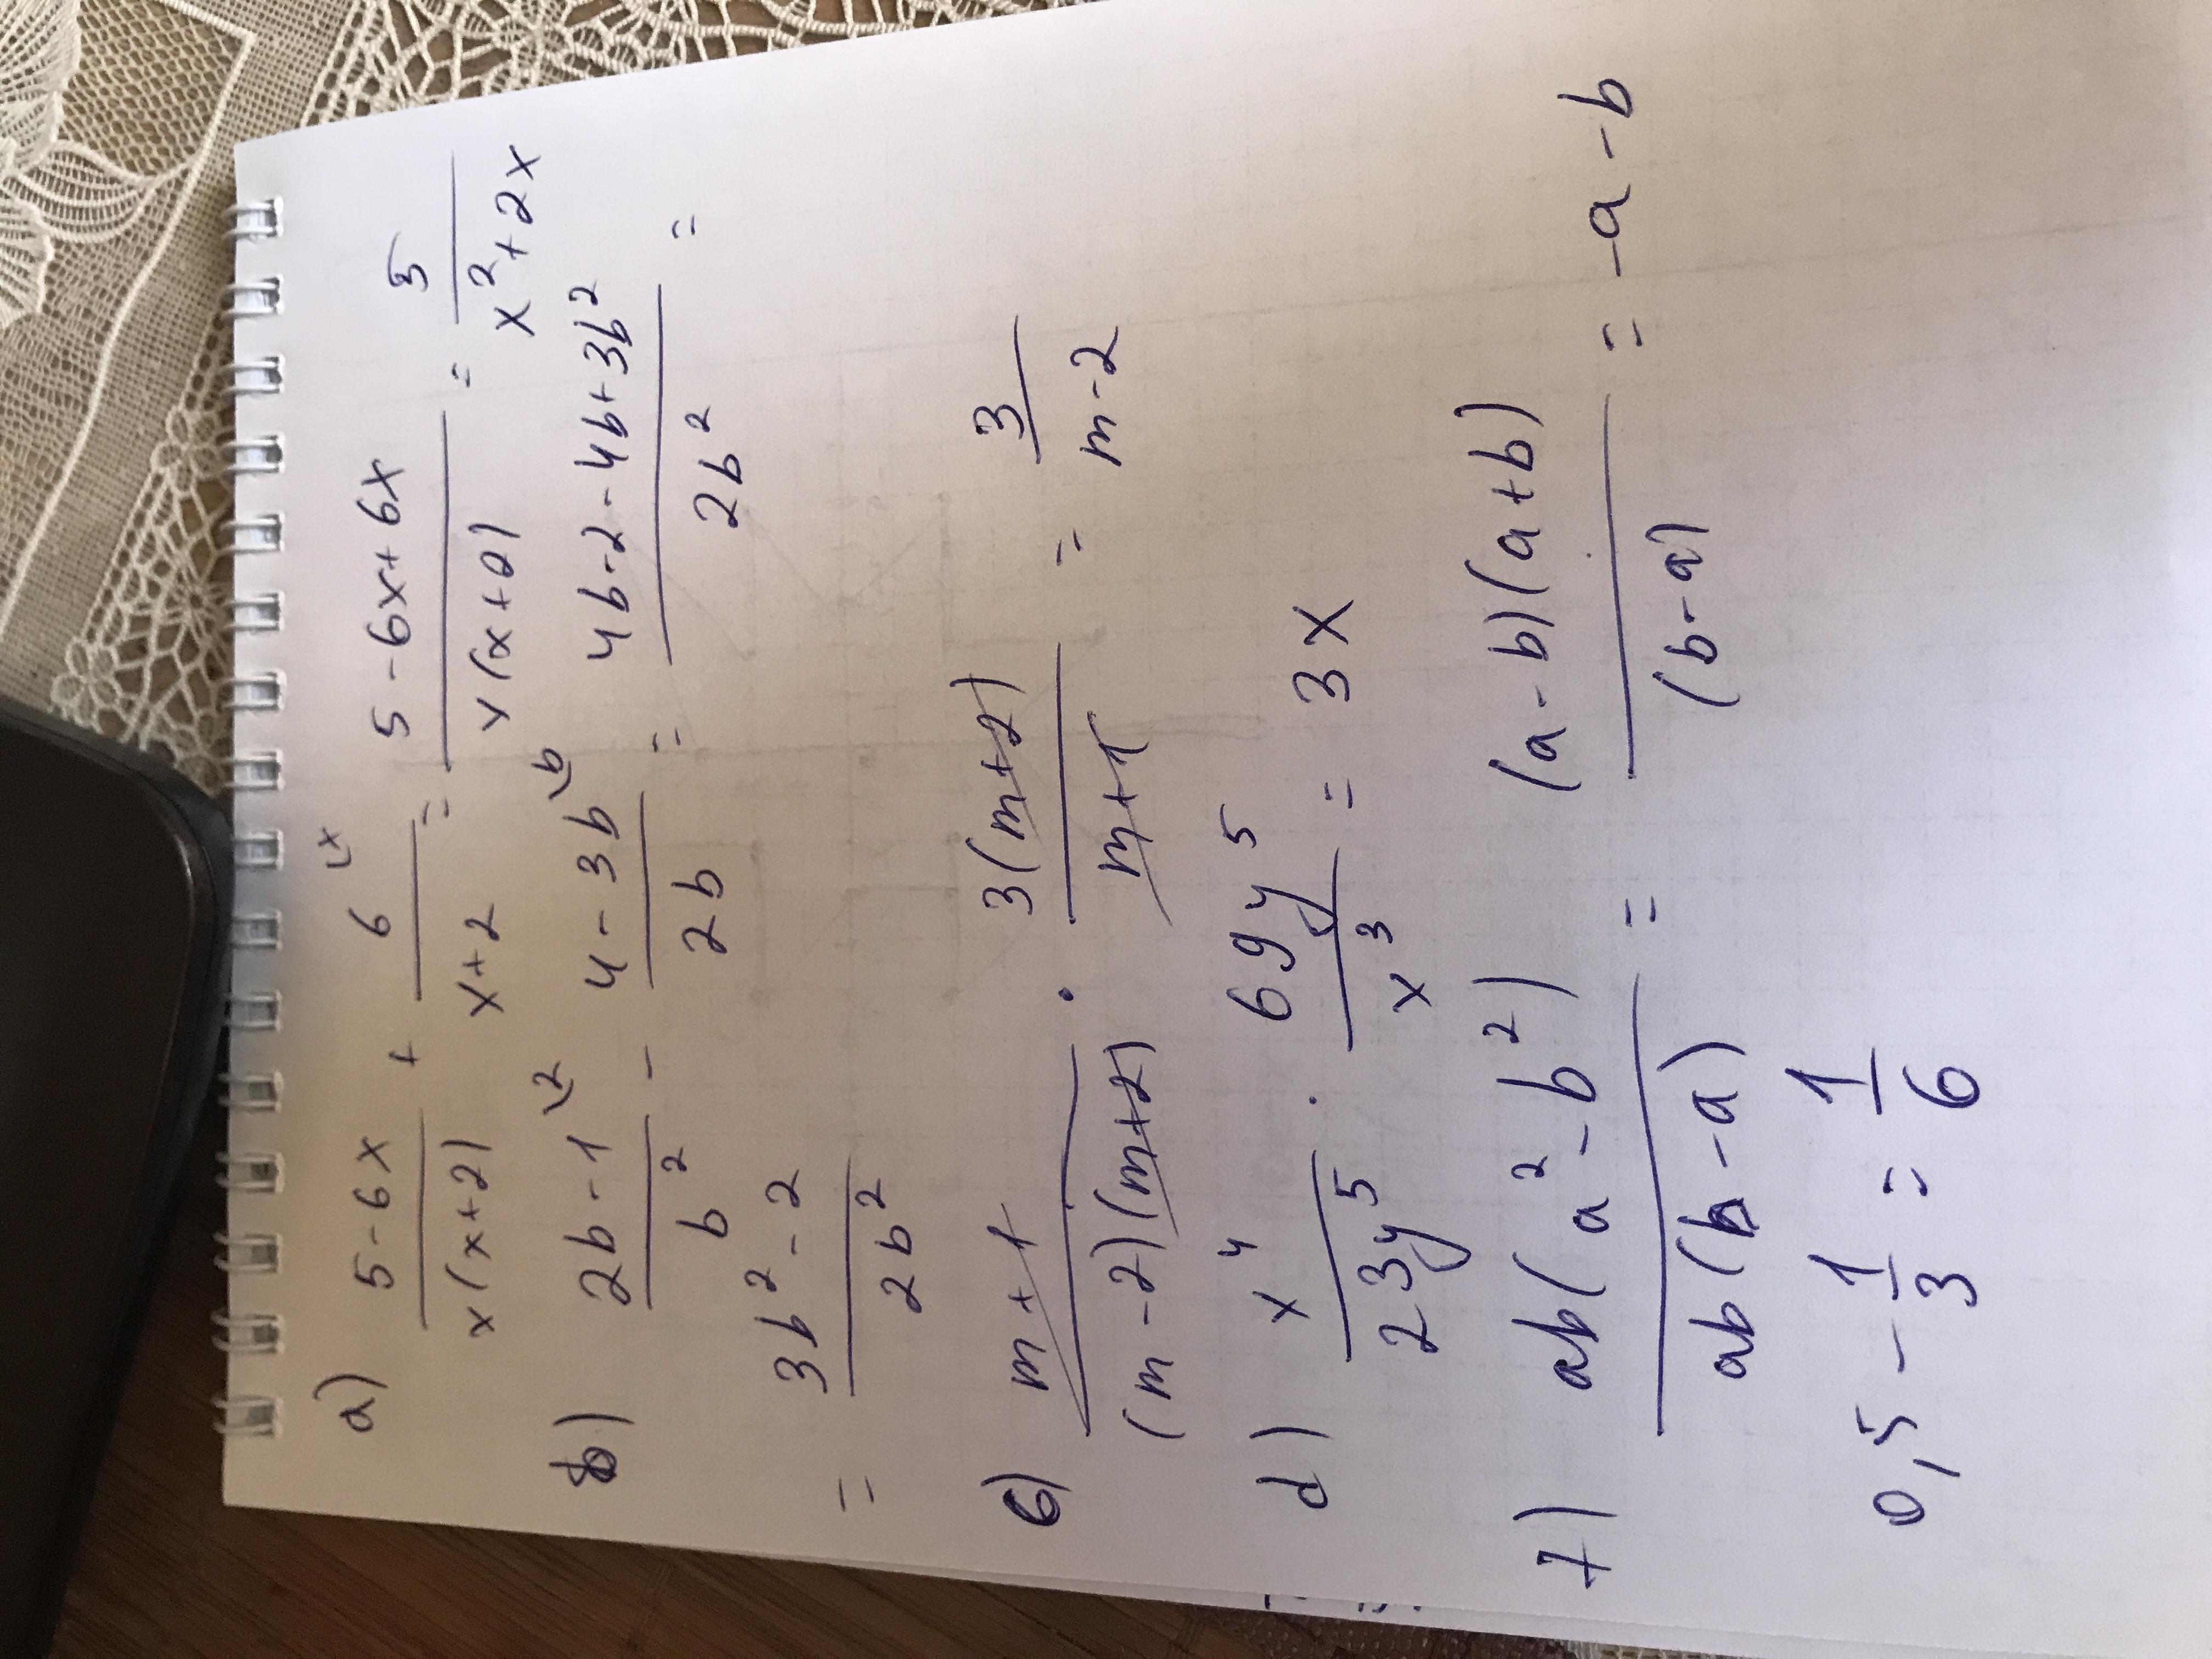 a) (5-6x)/(x(x+2)) + 6/(x+2) ⌊x = (5-6x+6x)/(x(x+2)) = 5/(x²+2x)
b) (2b-1)/b² ⌊2 - (4-3b)/2b ⌊b = (4b-2-4b+3b²)/2b² =
= (3b²-2)/2b²
c) (m+1)/((m-2)(m+2)) · 3(m+2)/(m+1) = 3/(m-2)
d) x⁴/(23y⁵) · 69y⁵/x³ = 3x
7) ab(a²-b²)/(ab(b-a)) = (a-b)(a+b)/(b-a) = -a-b
0,5 - 1/3 = 1/6